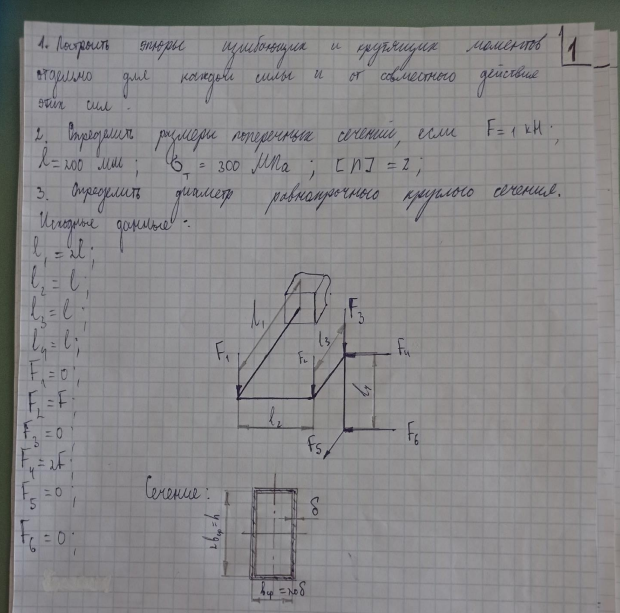 1. Построить эпюры изгибающих и крутящих моментов
отдельно для каждой силы и от совместного действия
этих сил.
1
2. Определить размеры поперечных сечений, если F = 1 кН;
l = 200 мм; σт = 300 МПа; [n] = 2;
3. Определить диаметр равнопрочного круглого сечения.
Исходные данные:
l1 = 2l;
l2 = l;
l3 = l;
l4 = l;
F1 = 0;
F2 = F;
F3 = 0
F4 = 2F;
F5 = 0;
F6 = 0;
l1
F3
F1
F2
l3
F4
l4
l2
F5
F6
Сечение:
δ
2bср = h
bср = 20δ